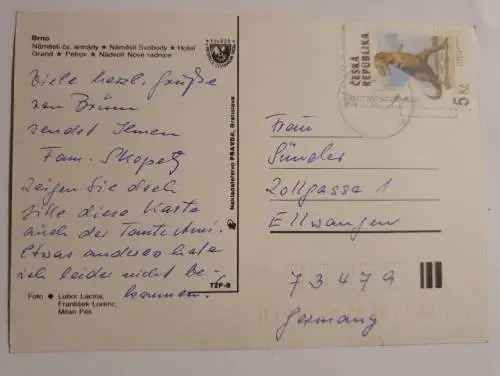 Brno
Náměstí čs. armády ★ Náměstí Svobody ★ Hotel
Grand ★ Petrov ★ Nádvoří Nové radnice
Viele herzl. Grüße
von Brünn
sendet Ihnen
Fam. Skopetz
Zeigen Sie doch
bitte diese Karte
auch der Tante Ami.
Etwas anderes habe
ich leider nicht be-
kommen.
Foto ● Lubor Lacina,
František Lorenc,
Milan Pěk
TZP-B
Nakladateľstvo PRAVDA, Bratislava
ČESKÁ
REPUBLIKA
5 Kč
Frau
Sündler
Zollgasse 1
Ellwangen
73479
Germany